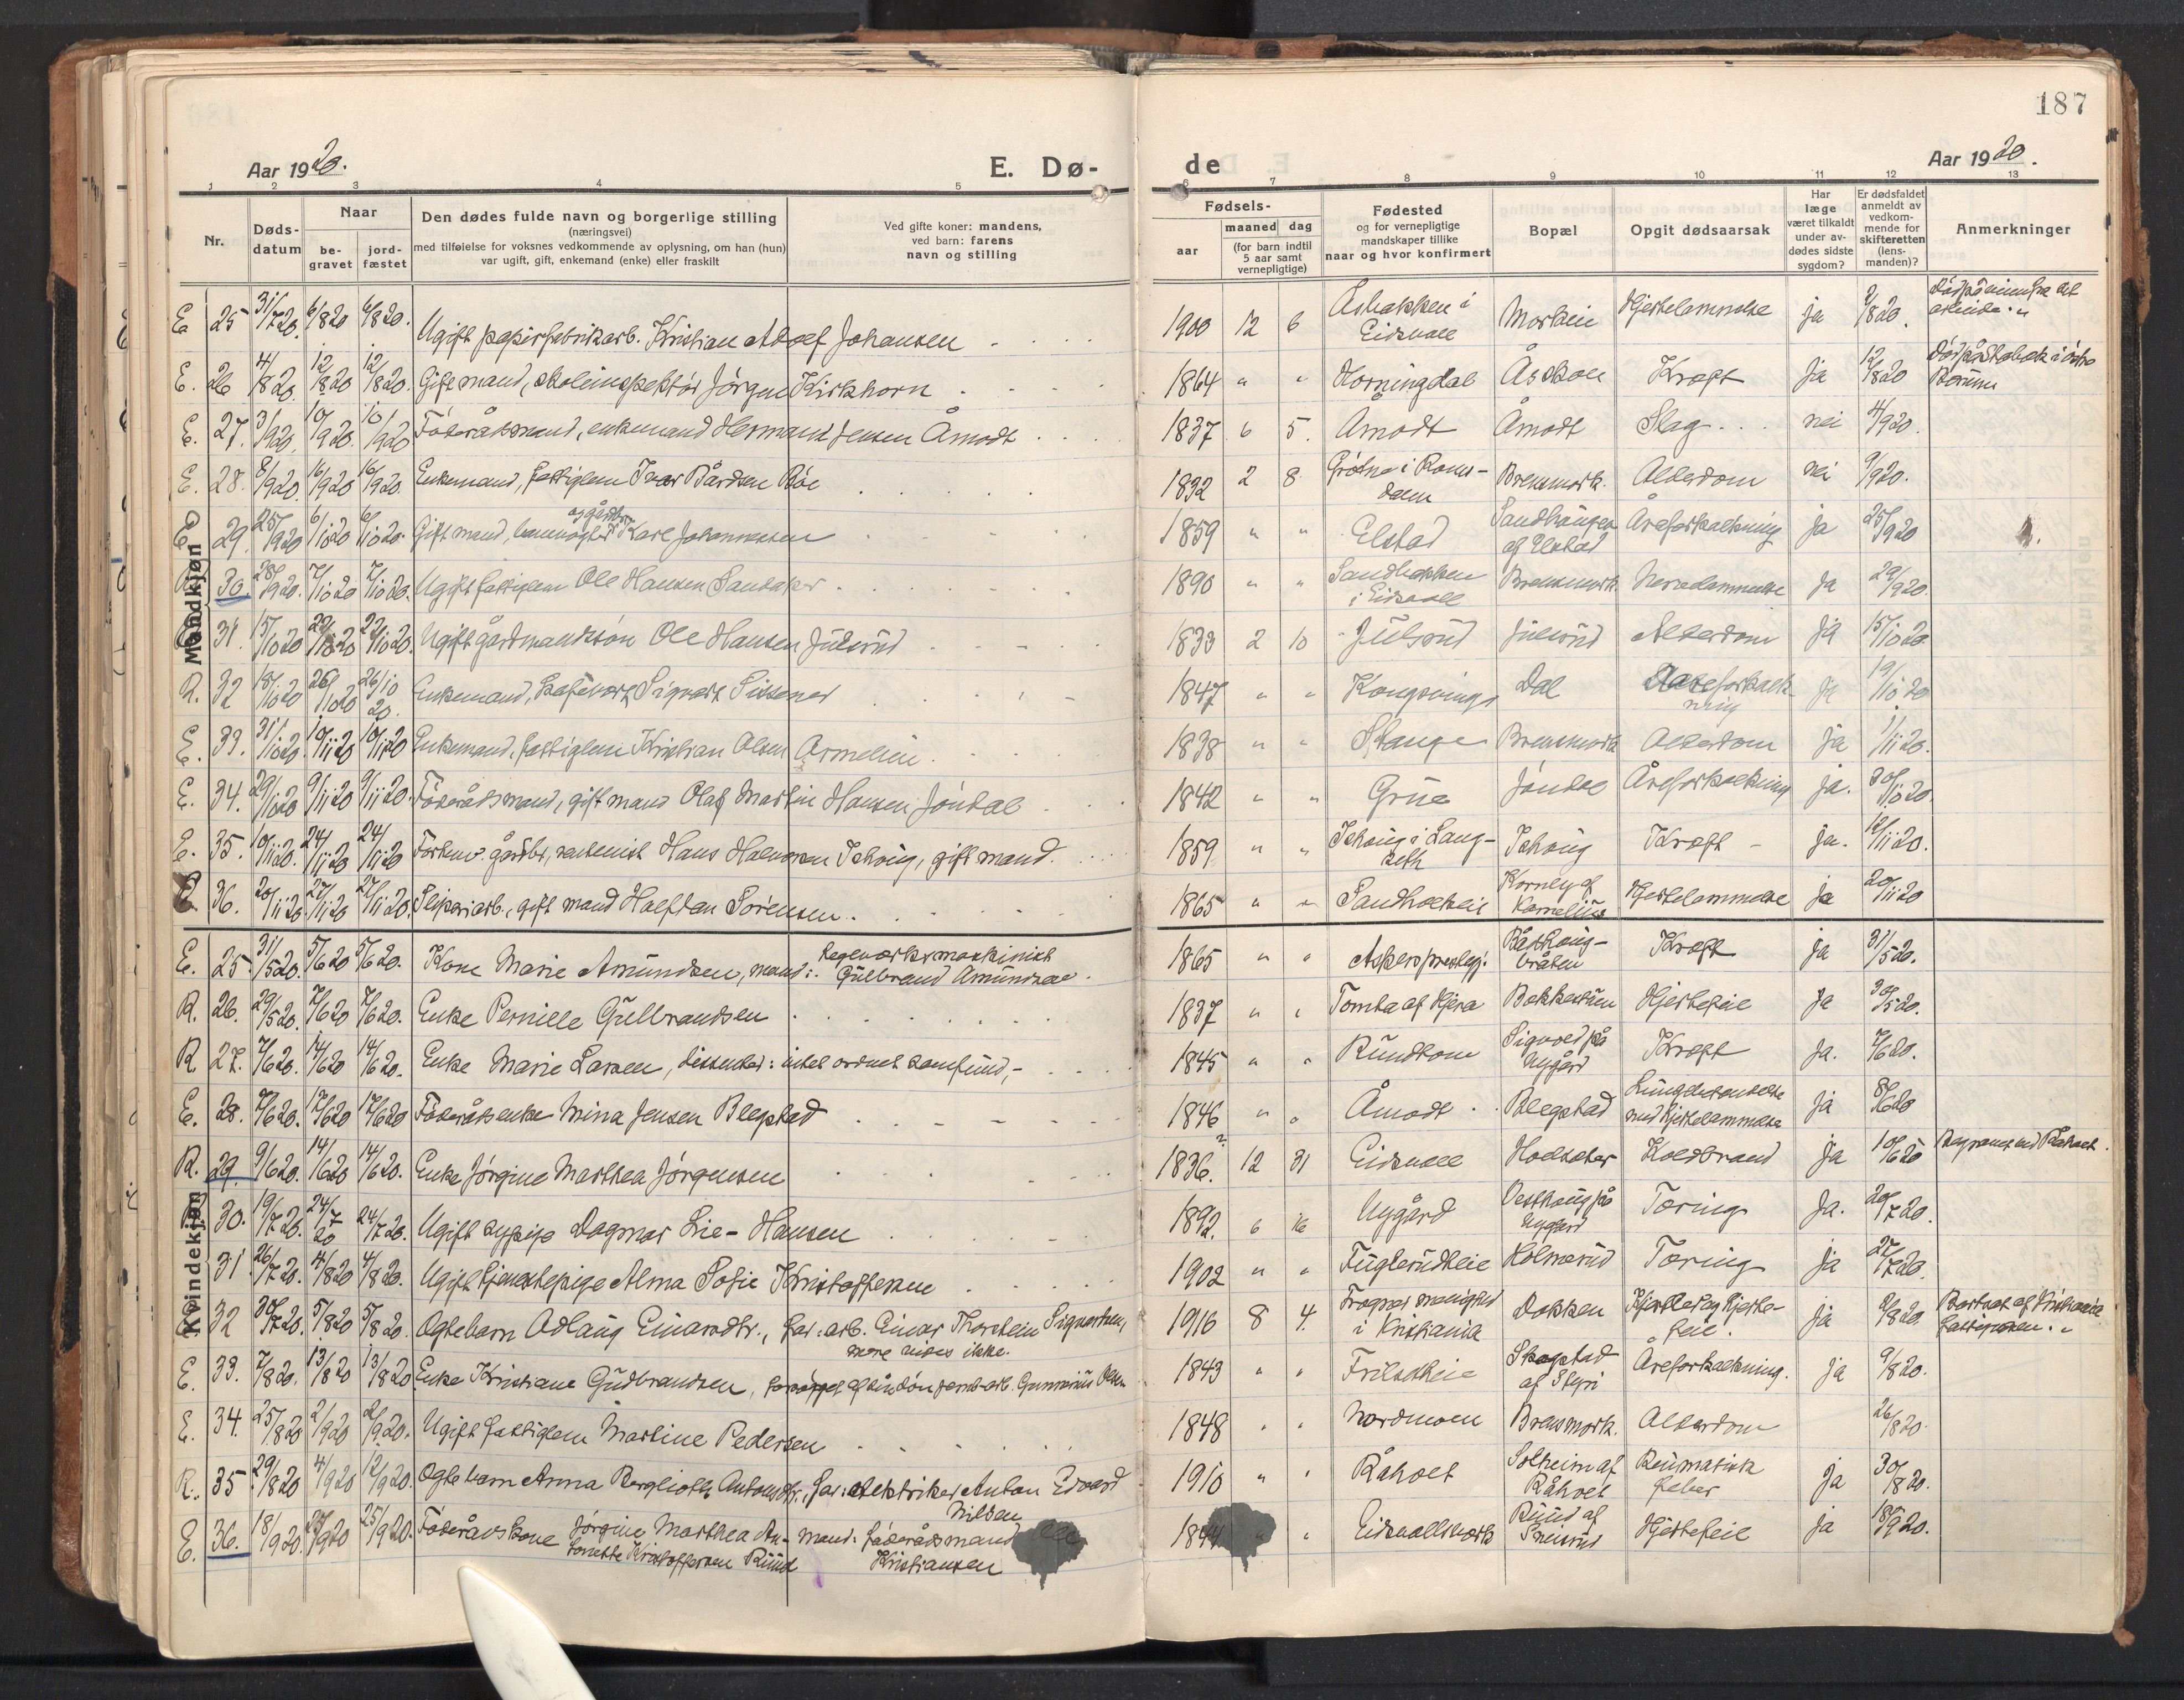 187
Aar 1920.
E. Dø-
de
Aar 1920.
1 2 3 4 5 6 7 8 9 10 11 12 13
Nr.
Døds-
datum
Naar
be-
gravet
jord-
fæstet
Den dødes fulde navn og borgerlige stilling
(næringsvei)
med tilføielse for voksnes vedkommende av oplysning, om han (hun)
var ugift, gift, enkemand (enke) eller fraskilt
Ved gifte koner: mandens,
ved barn: farens
navn og stilling
Fødsels-
aar
maaned dag
(for barn indtil
5 aar samt
vernepligtige)
Fødested
og for vernepligtige
mandskaper tillike
naar og hvor konfirmert
Bopæl
Opgit dødsaarsak
Har
læge
været tilkaldt
under av-
dødes sidste
sygdom?
Er dødsfaldet
anmeldt av
vedkom-
mende for
skifteretten
(lens-
manden)?
Anmerkninger
Mandkjøn
E. 25 31/7 20. 6/8 20 6/8 20. Ugift papirfabrikarb. Kristian Adolf Johansen 1900 12 6 Åsbakken i Eidsvoll Hjertelammelse ja 2/8 20.
E. 26 4/8 20. 12/8 20 12/8 20. Gift mand, skoleinspektør Jørgen Kirkhorn 1864 " " Horningdal Kræft ja 12/8 20
E. 27. 3/9 20. 10/9 20. 10/9 20 Føderådsmand, enkemand Herman Jensen Åmodt 1837 6 5. Åmodt Åmodt Slag nei 4/9 20.
E. 28. 8/9 20. 16/9 20 16/9 20. Enkemand, fattiglem Ivar Bårdsen Röe 1832 2 8 Grötna i Romsdalen Brensmork. Alderdom nei 9/9 20.
E. 29. 25/9 20 6/10 20 6/10 20. Gift mand, og gårdbr. Karl Johannessen 1859 " " Elstad Sandhaugen af Elstad Åreforkalkning ja 25/9 20
R. 30. 28/9 20. 7/10 20 7/10 20. Ugift fattiglem Ole Hansen Sandaker 1890 " " Sandbakken i Eidsvoll Brensmork. Nervelammelse ja 29/9 20
31. 15/10 20 22/10 20 22/10 20. Ugift gårdmandssøn Ole Hansen Julsrud 1833 2 10 Julsrud Julsrud Alderdom ja 15/10 20.
R. 32 18/10 20 26/10 20 26/10 20. Enkemand, Sigvart Sissener 1847 " " Kongsvinger Dal Aareforkalkning ja 19/10 20
E. 33. 31/10 20. 10/11 20 10/11 20 Enkemand, fattiglem Kristian Olsen Armelien. 1838 " " Stange Brensmork Alderdom ja 1/11 20.
E. 34. 29/10 20 9/11 20 9/11 20. Føderådsmand, gift mand Olaf Martin Hansen Jöndal 1842 " " Grue Jöndal Åreforkalkning ja. 30/10 20.
E. 35. 10/11 20. 24/11 20 24/11 20 Forhenv. gårdbr, rentenist Hans Halvorsen Ishoug, gift mand. 1859 " " Ishoug i Langseth Ishoug Kræft ja. 12/11 20.
36. 20/11 20 27/11 20 27/11 20. Sliperiarb., gift mand Halfdan Sörensen. 1865 " " Hjertelammelse ja 20/11 20
Kvindekjøn
E. 25. 31/5 20. 5/6 20 5/6 20. Kone Marie Amundsen, mand: Gulbrand Amundsen. 1865 " " Askers prestegj. Kræft ja 31/5 20.
R. 26. 29/5 20. 7/6 20 7/6 20. Enke Pernille Gulbrandsen 1837 " " Tomta af Hjera Hjertefeil ja 30/5 20.
R. 27. 7/6 20. 14/6 20 14/6 20. Enke Marie Larsen, dissenter: intet ordnet samfund,- 1845 " " Rundtom Sigvold på Nygård Kræft ja. 7/6 20.
E. 28. 7/6 20. 17/6 20 17/6 20 Føderådsenke Mina Jensen Blegstad 1846 " " Åmodt Blegstad Lungebetændelse med Hjertelammelse ja 8/6 20
R. 29. 9/6 20. 14/6 20 14/6 20. Enke Jørgine Marthea Jørgensen 1836. 12 31 Eidsvoll Holsæter Koldbrand ja 10/6 20 Begravet ved Råholt.
30. 19/7 20. 24/7 20 24/7 20. Ugift sypige Dagmar Lie-Hansen 1892. 6 16 Nygård Vesthaug på Nygård Tæring ja. 20/7 20.
31. 26/7 20. 4/8 20 4/8 20. Ugift tjenestepige Alma Sofie Kristoffersen 1902 " " Fuglerudeie Holmsrud Tæring ja 27/7 20.
32 30/7 20. 5/8 20 5/8 20. Ogtebarn Adlaug Einarsdtr., far: arb. Einar Thorstein Sigvartsen, more vides ikke. 1916 8 4. Frogner menighed i Kristiania Dokken ja 2/8 20. Bortsat af Kristiania fattigvæsen.
E. 33. 7/8 20. 13/8 20 13/8 20 Enke Kristiane Gudbrandsen, forsørget af sin søn jernb.arb. Gunnerius Olsen 1843 " " Frilsetheie Skogstad af Styri Åreforkalkning. ja 9/8 20.
E. 34. 25/8 20 2/9 20 2/9 20. Ugift fattiglem Martine Pedersen 1848 " " Nordmoen Brensmork. Alderdom 26/8 20.
R. 35 29/8 20 4/9 20 12/9 20. Ogtebarn Anna Berglioth Antonsdtr., far: elektriker Anton Edvard Nilsen 1910 " " Råholt Solheim af Råholt Reumatisk feber ja 30/8 20.
E. 36. 18/9 20. 25/9 20 25/9 20. Føderådskone Jørgine Marthea Kristoffersen Ruud mand: føderådsmand Kristiansen 1844 " " Eidsvollsværk Ruud af Hjertefeil ja 18/9 20.